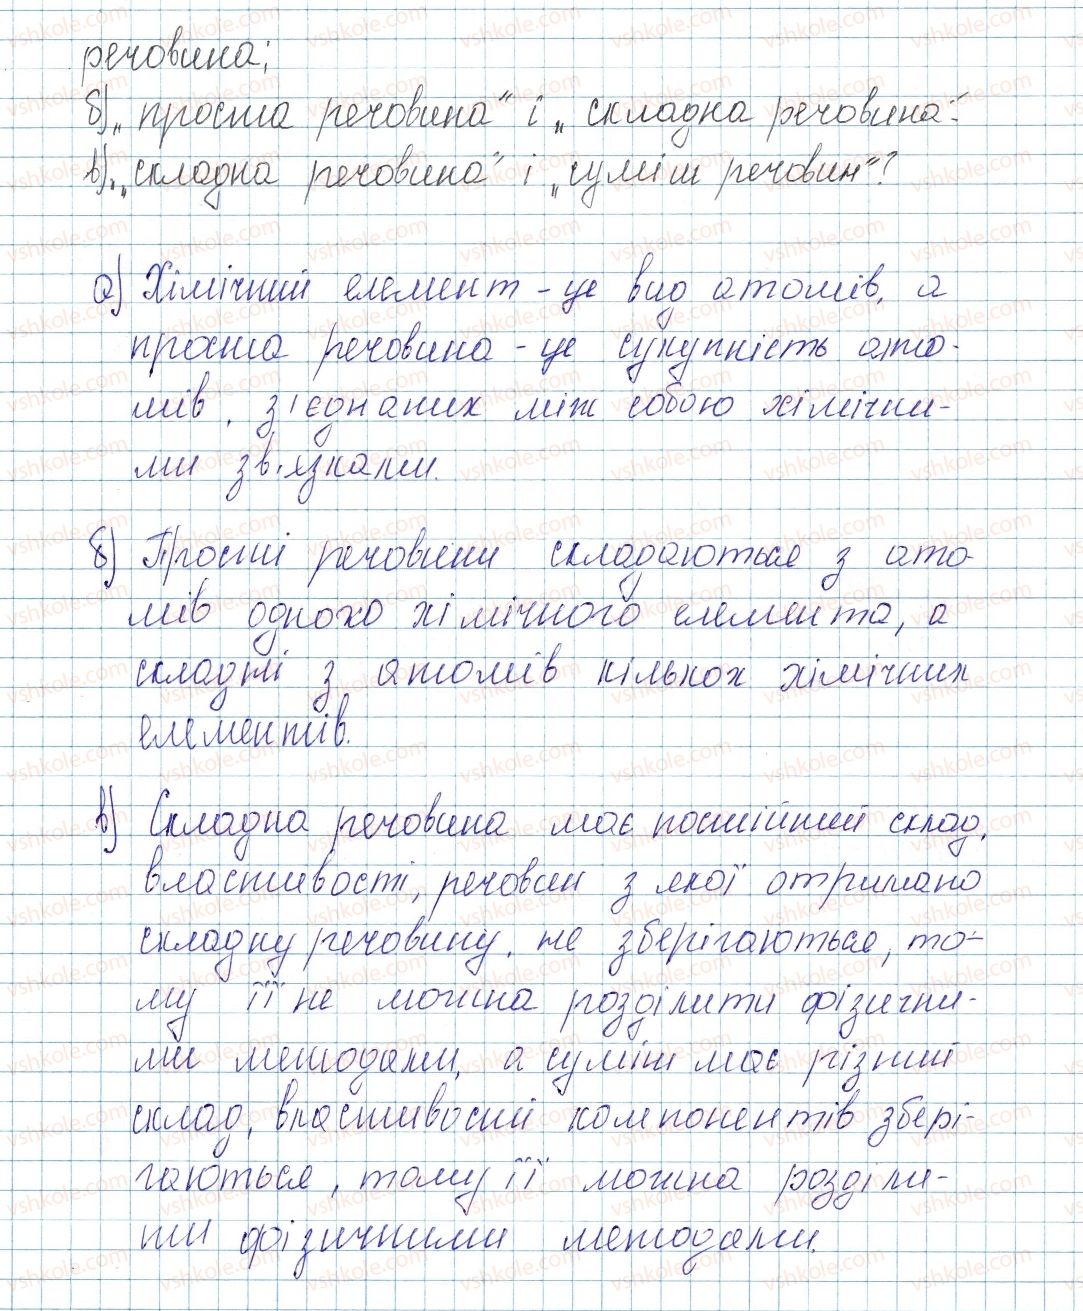 речовина;
б) „проста речовина" і „складна речовина";
в) „складна речовина" і „суміш речовин"?
а) Хімічний елемент - це вид атомів, а
проста речовина - це сукупність ато-
мів, з'єднаних між собою хімічни-
ми зв'язками.
б) Прості речовини складаються з ато-
мів одного хімічного елемента, а
складні з атомів кількох хімічних
елементів.
в) Складна речовина має постійний склад,
властивості, речовин з якої отримано
складну речовину, не зберігаються, то-
му її не можна розділити фізични-
ми методами, а суміш має різний
склад, властивості компонентів збері-
гаються, тому її можна розділи-
ти фізичними методами.
vshkole.com